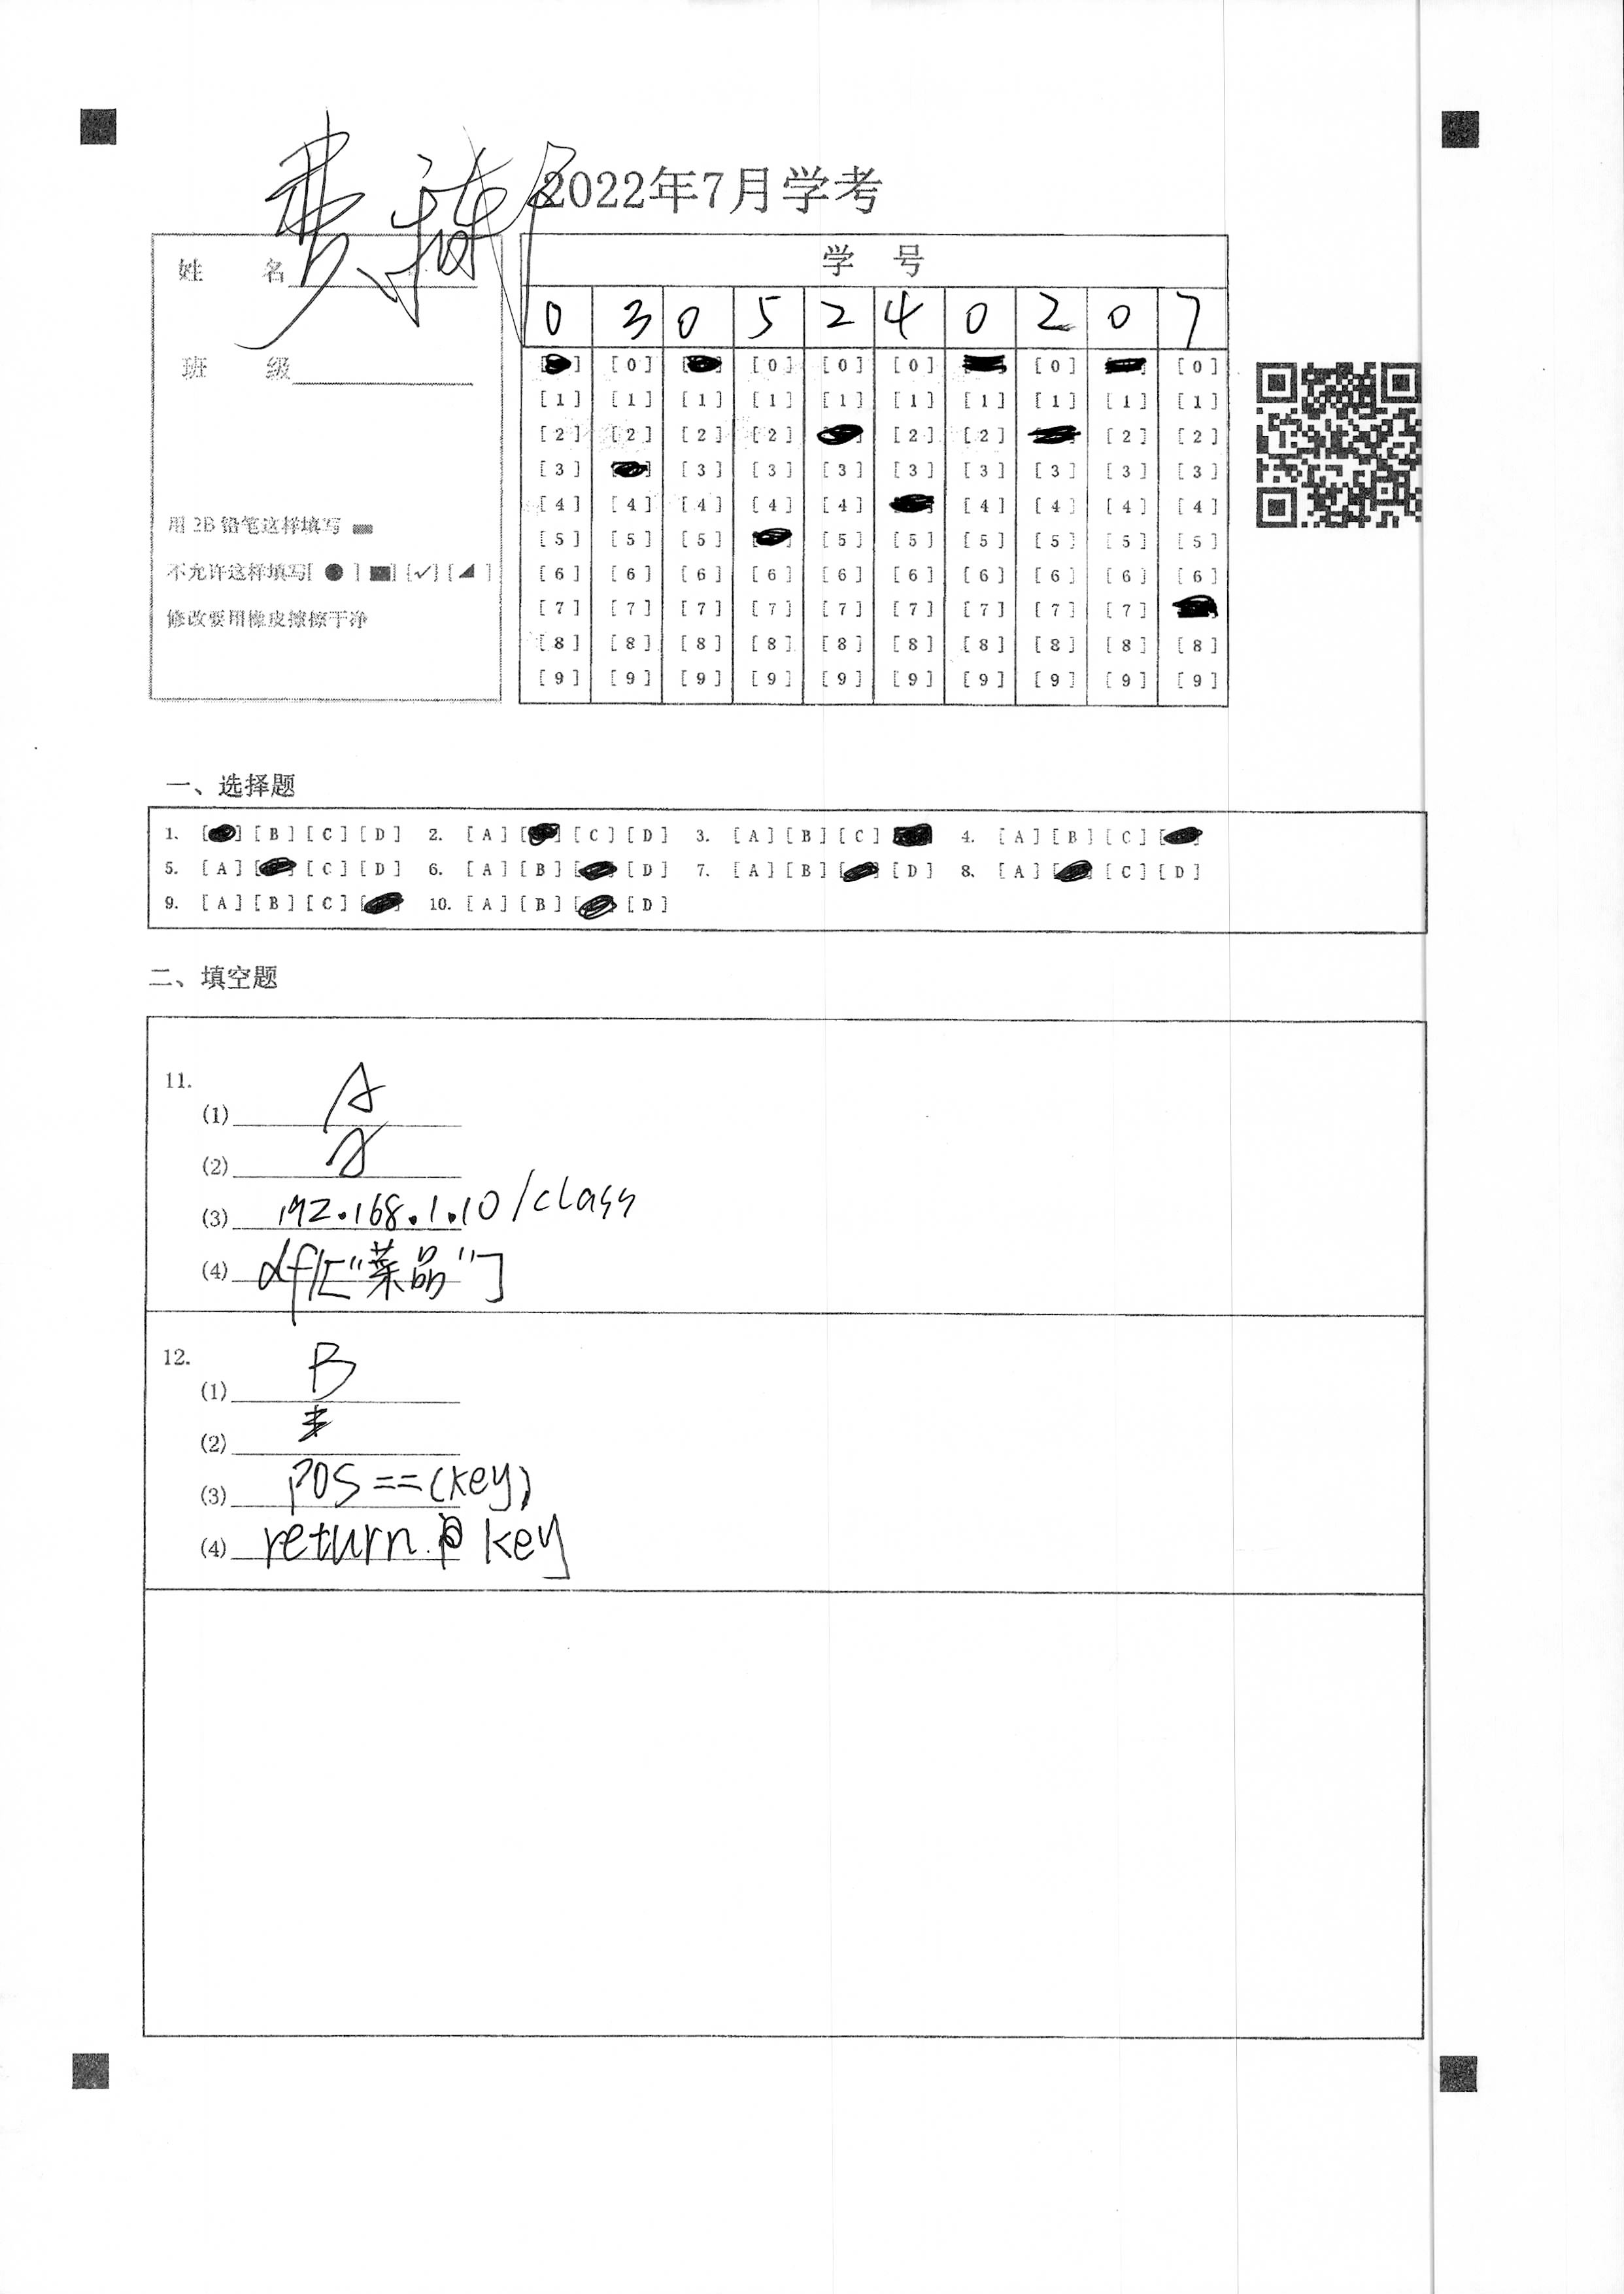 2022年7月学考
姓 名
班 级
用 2B 铅笔这样填写
不允许这样填写[ ● ] [■] [✓] [◢ ]
修改要用橡皮擦擦干净
学 号
0 3 0 5 2 4 0 2 0 7
[ ] [0] [ ] [0] [0] [0] [ ] [0] [ ] [0]
[1] [1] [1] [1] [1] [1] [1] [1] [1] [1]
[2] [2] [2] [2] [ ] [2] [2] [ ] [2] [2]
[3] [ ] [3] [3] [3] [3] [3] [3] [3] [3]
[4] [4] [4] [4] [4] [ ] [4] [4] [4] [4]
[5] [5] [5] [ ] [5] [5] [5] [5] [5] [5]
[6] [6] [6] [6] [6] [6] [6] [6] [6] [6]
[7] [7] [7] [7] [7] [7] [7] [7] [7] [ ]
[8] [8] [8] [8] [8] [8] [8] [8] [8] [8]
[9] [9] [9] [9] [9] [9] [9] [9] [9] [9]
一、选择题
1. [ ] [B] [C] [D] 2. [A] [ ] [C] [D] 3. [A] [B] [C] [ ] 4. [A] [B] [C] [ ]
5. [A] [ ] [C] [D] 6. [A] [B] [ ] [D] 7. [A] [B] [ ] [D] 8. [A] [ ] [C] [D]
9. [A] [B] [C] [ ] 10. [A] [B] [ ] [D]
二、填空题
11.
(1) A
(2)
(3) 192.168.1.10/class
(4) df1["菜品"]
12.
(1) B
(2)
(3) pos==(key)
(4) return key